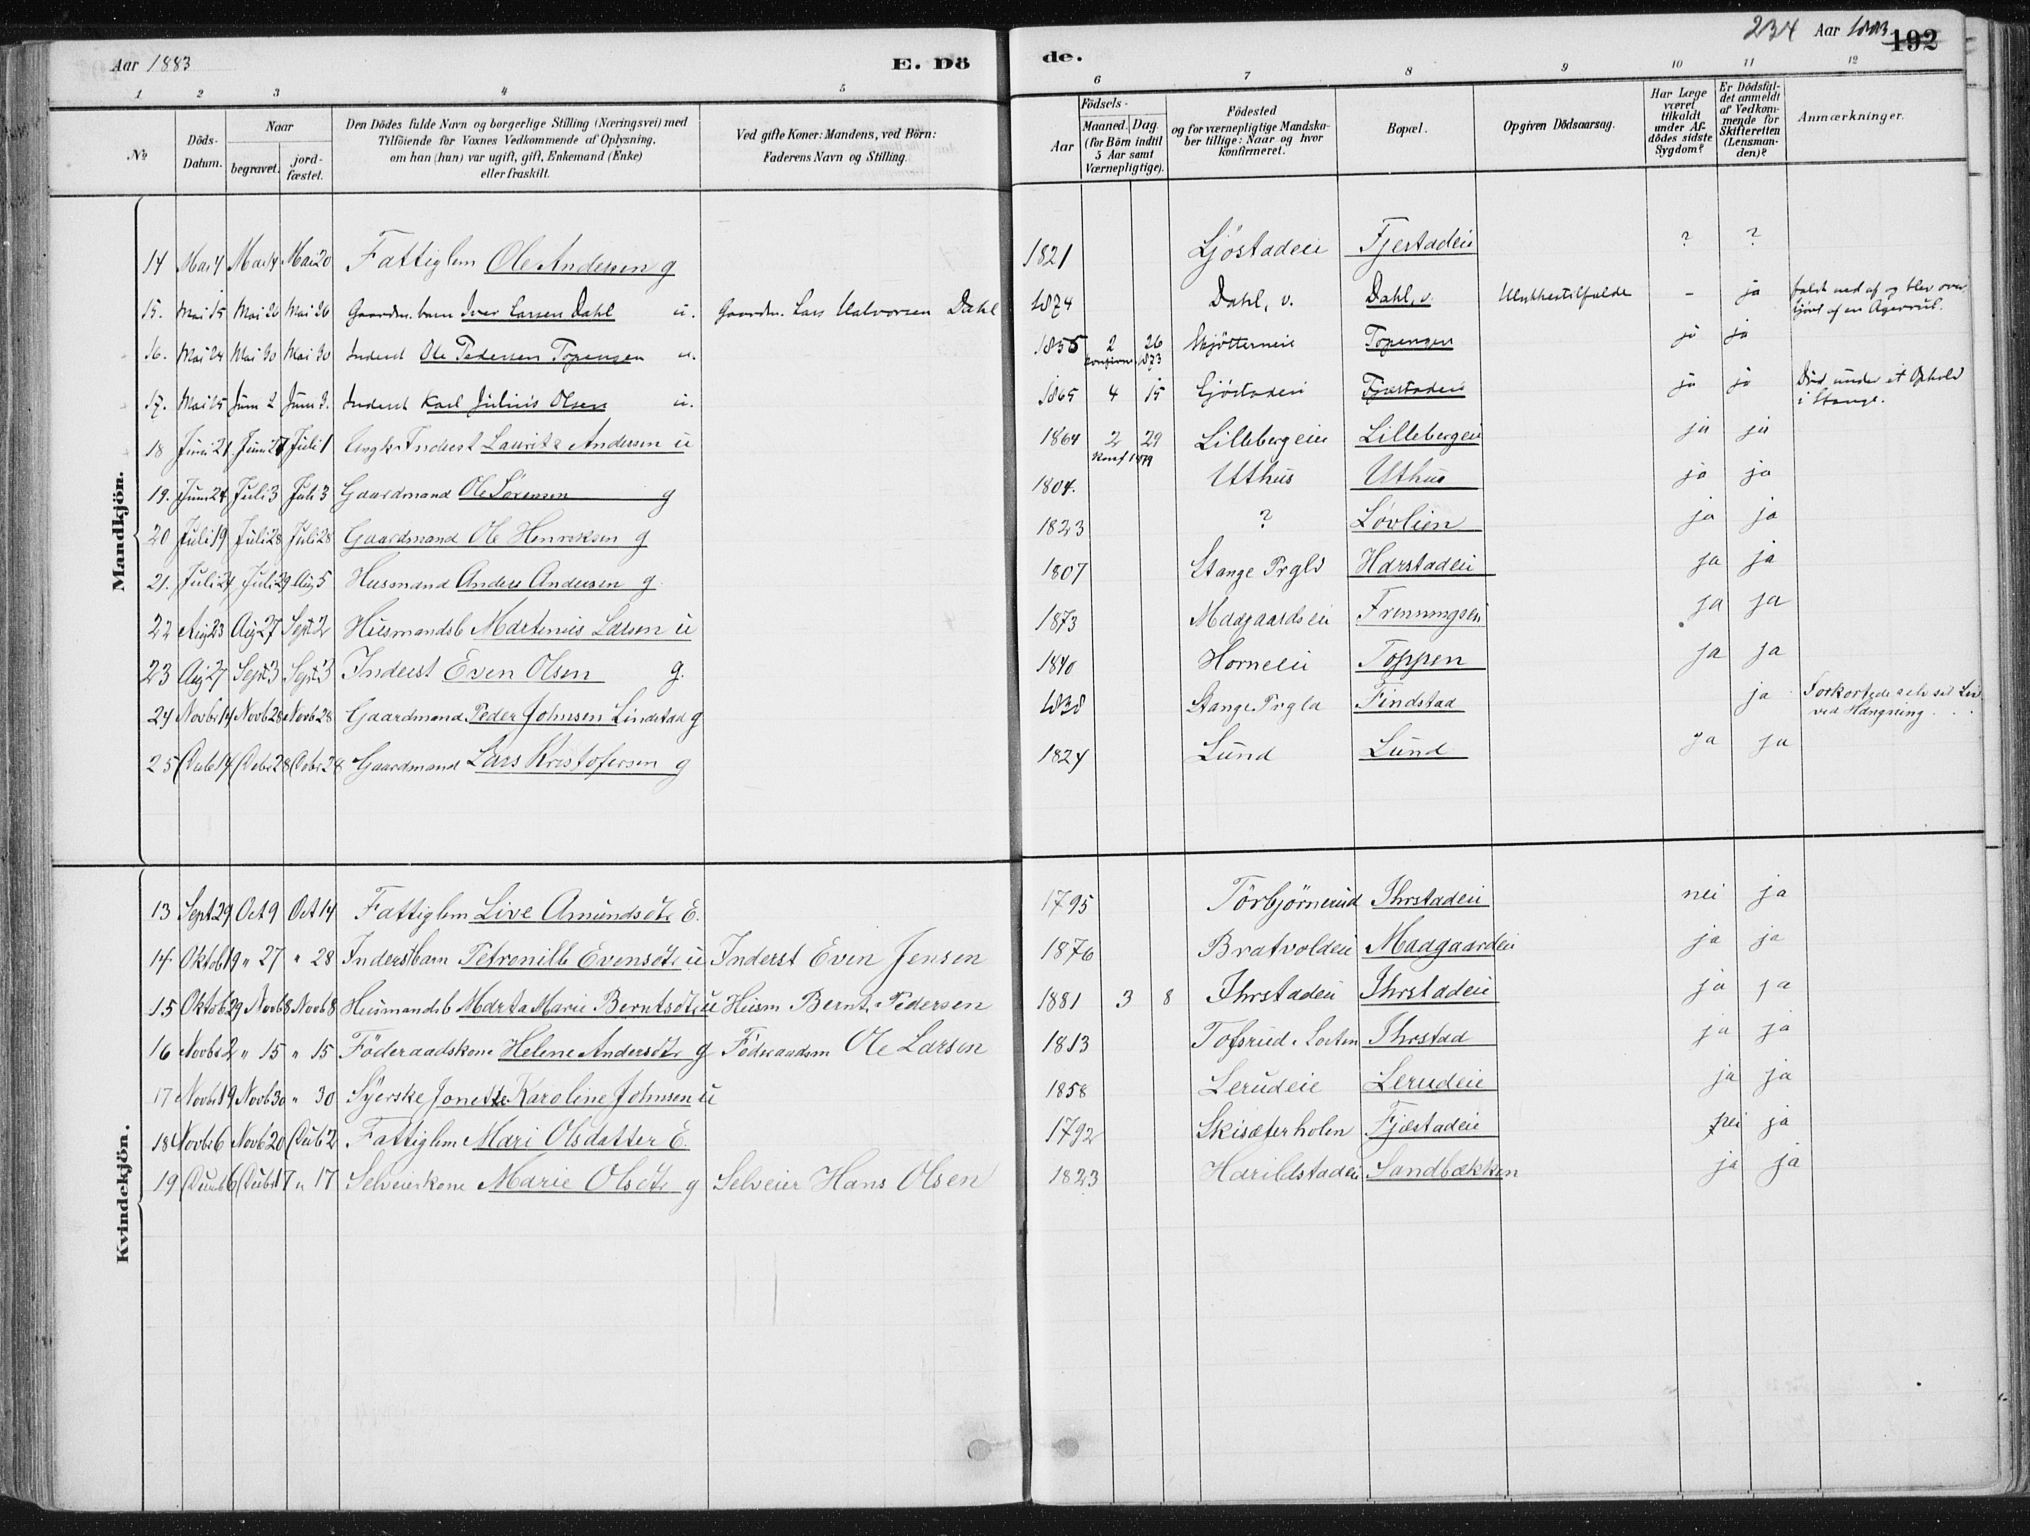 Aar 1883 E. Dö
de. 234 Aar 1883 192
1 2 3 4 5 6 7 8 9 10 11 12
No Döds-Datum. Naar begravet. jord-fæstet. Den Dödes fulde Navn og borgerlige Stilling (Næringsvei) med Tilföiende for Voxnes Vedkommende af Oplysning, om han (hun) var ugift, gift, Enkemand (Enke) eller fraskilt. Ved gifte Koner: Mandens, ved Börn: Faderens Navn og Stilling. Aar Födsels- Maaned. Dag (for Börn indtil 5 Aar samt Værnepligtige). Födested og for værnepligtige Mandskaber tillige: Naar og hvor konfirmeret. Bopæl. Opgiven Dödsaarsag. Har Læge været tilkaldt under Afdödes sidste Sygdom? Er Dödsfaldet anmeldt af Vedkommende for Skifteretten (Lensmanden)? Anmærkninger.
Mandkjön.
14 Mai 4 Mai 14 Mai 20 Fattiglem Ole Andersen g 1821 Gjöstadeie Fjestadeie ? ?
15. Mai 15 Mai 26 Mai 26 Gaardm. barn Iver Larsen Dahl u. Gaardm. Lars Halvorsen Dahl 1874 Dahl, v. Dahl, v. Ulykkestilfælde - ja faldt ned af og blev over kjört af en Agerrul.
16. Mai 24 Mai 30 Mai 30 Inderst Ole Pedersen Topengen u. 1855 2 26 Topengen ja ja
konfirm. 1873
17. Mai 25 Juni 2 Juni 3. Inderst Karl Julius Olsen u. 1865 4 15 Gjöstadeie Fjæstadeie ja ja Död under et Ophold i Stange.
18 Juni 21 Juni 27 Juli 1 Ungk. Inderst Lauritz Andersen u 1864 2 29 Lillebergeie Lillebergeie ja ja
Konf 1879
19. Juni 24 Juli 3 Juli 3 Gaardmand Ole Sörensen g 1804. Uthus Uthus ja ja
20 Juli 19 Juli 28 Juli 28 Gaardmand Ole Henriksen g 1823 ? Lövlien ja ja
21. Juli 24 Juli 29 Aug 5 Husmand Anders Andersen g. 1807 Stange Prgld Harstadeie ja ja
22 Aug 23 Aug 27 Sept 2 Husmandsb Martinius Larsen u 1873 Maagaardseie Frenningseie ja ja
23 Aug 27 Sept 3 Sept 3 Inderst Even Olsen g. 1840 Horneeie Toppen ja ja
24 Novbr 14 Novb 28 Novb 28 Gaardmand Peder Johnsen Lindstad g 1838 Stange Prgld Findstad ja Forkortede selv sit Liv ved Hængning
25 Decbr 14 Decbr 28 Decbr 28 Gaardmand Lars Kristofersen g 1824 Lund Lund ja ja
Kvindekjön.
13 Sept 29 Oct 9 Oct 14 Fattiglem Live Amundsdtr E. 1795 Törbjörnerud Ihrstadeie nei ja
14. Oktob 19 " 27 " 28 Inderstbarn Petronille Evensdtr u Inderst Even Jensen 1876 Bratvoldeie Maagaardeie ja ja
15 Oktob 29 Novb 8 Novb 8 Husmandsb Marta Marie Berntsdtr u Husm Bernt Pedersen 1881 3 8 Ihrstadeie Ihrstadeie ja ja
16 Novbr 2 " 15 " 15 Föderaadskone Helene Andersdtr g Föderaadsm Ole Larsen 1813 Tofsrud. Loiten Ihrstad ja ja
17 Novbr 19 Novb 30 " 30 Syerske Jonette Karoline Johnsen u 1858 Lerudeie Lerudeie ja ja
18 Novbr 6 Novb 20 Decb 2 Fattiglem Mari Olsdatter E. 1792 Skisæterholen Fjæstadeie nei ja
19 Decbr 6 Decbr 17 " 17 Selveierkone Marie Olsdtr g Selveier Hans Olsen 1823 Harildstadeie Sandbækken ja ja